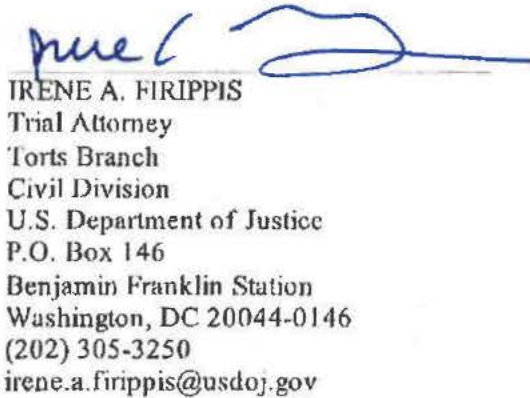 IRENE A. FIRIPPIS
Trial Attorney
Torts Branch
Civil Division
U.S. Department of Justice
P.O. Box 146
Benjamin Franklin Station
Washington, DC 20044-0146
(202) 305-3250
irene.a.firippis@usdoj.gov